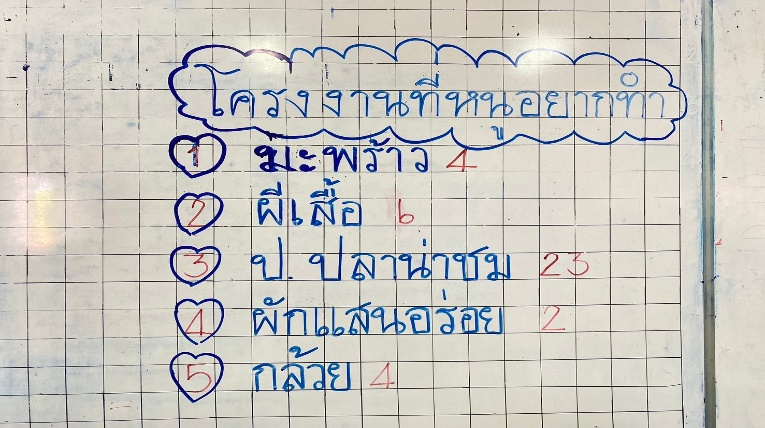 โครงงานที่หนูอยากทำ
1 มะพร้าว 4
2 ผีเสื้อ 6
3 ป.ปลาน่าชม 23
4 ผักแสนอร่อย 2
5 กล้วย 4